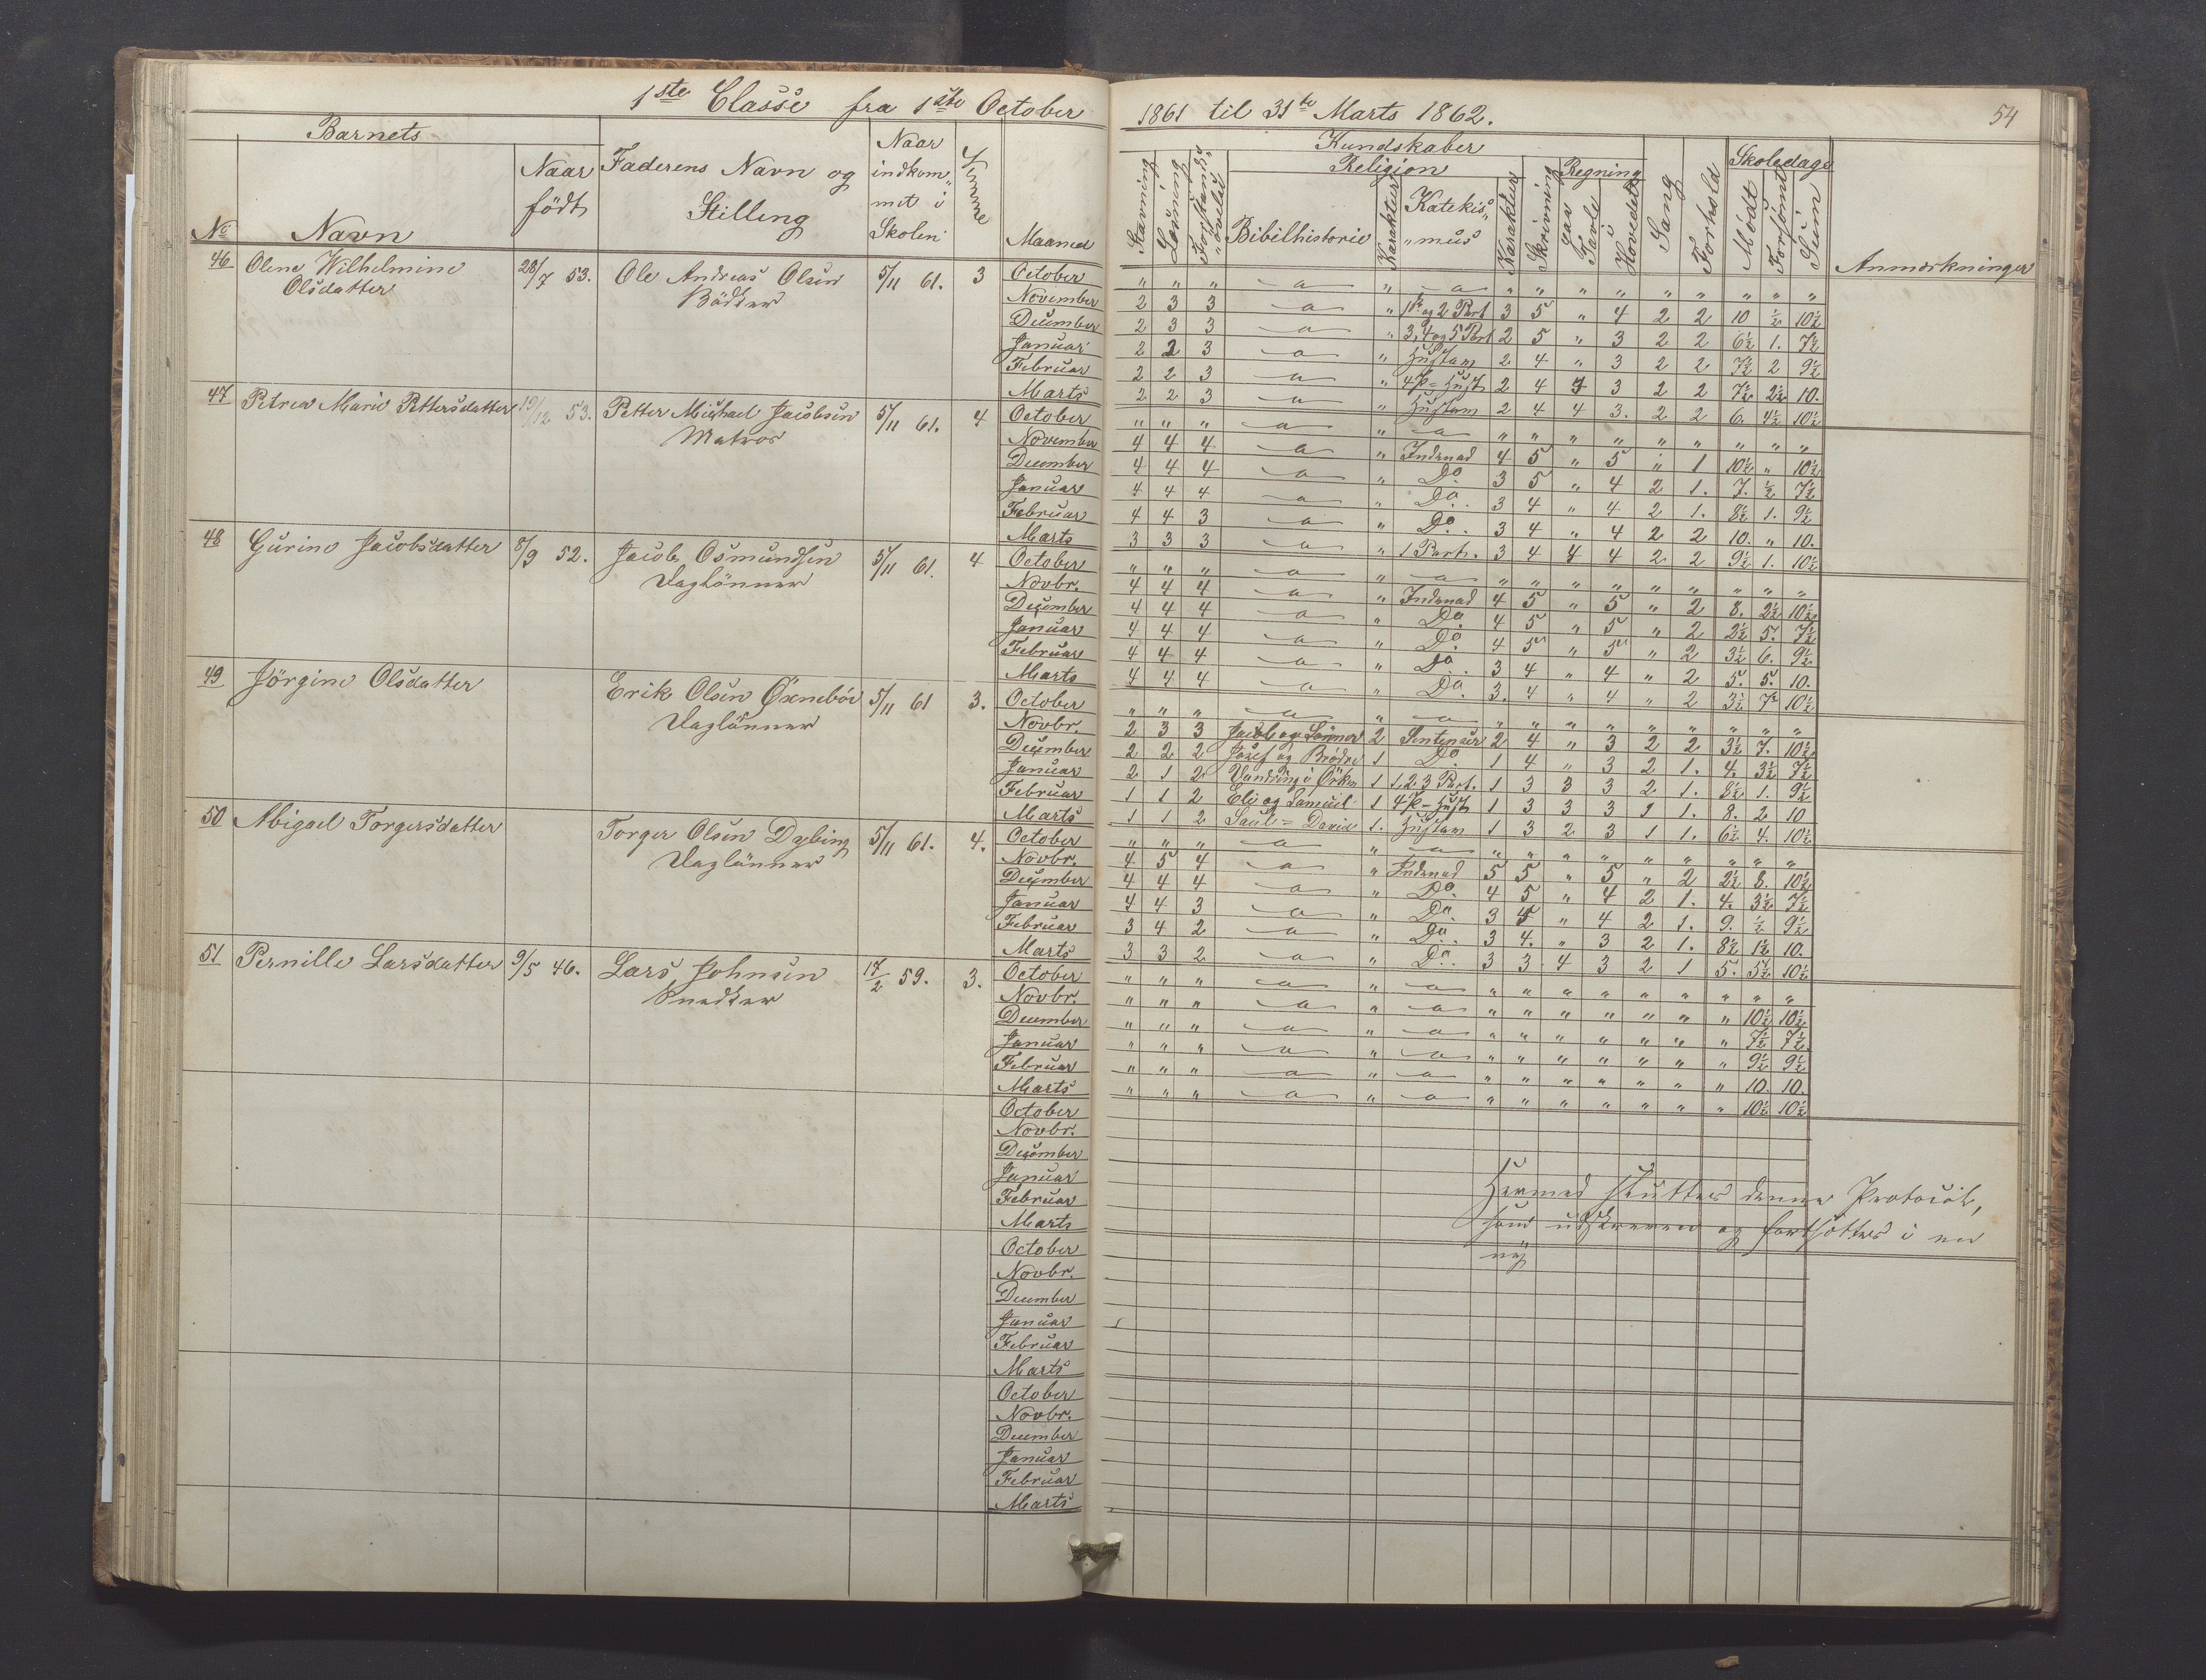 1ste Classe fra 1ste October 1861 til 31te Marts 1862. 54
Barnets
No Navn Naar födt Faderens Navn og Stilling Naar indkommet i Skolen Maaned
Kundskaber
Religion Regning Skoledage
Stavning Læsning Bibelhistorie Karakter Katekis„ „mus Karakter Skrivning paa Tavle i Hovedet Sang Forhold Mödt Forsömt Anmærkninger
46 Olene Wilhelmine Olsdatter 28/7 53. Ole Andreas Olsen Bödker 5/11 61. 3
October „ „ „ „ „ „ „ „ „ „ „ „ „
November 2 3 3 „ 1ste og 2 Part 3 5 „ 4 2 2 10 ½ 10½
December 2 3 3 „ 3, 4 og 5 Part 2 5 „ 3 2 2 6½ 1. 7½
Januar 2 2 3 „ 2 4 „ 3 2 2 7½ 2 9½
Februar 2 2 3 „ 2 4 3 2 2 7½ 2½ 10.
Marts 2 2 3 „ 2 4 4 3. 2 2 6. 4½ 10½
47 Petrea Marie Pettersdatter 19/12 53. Petter Michael Jacobsen Matros 5/11 61. 4
October „ „ „ „ „ „ „ „ „ „ „ „ „
November 4 4 4 „ Indenad 4 5 „ 5 „ 1 10½ „ 10½
December 4 4 4 „ Do. 3 5 „ 4 2 1. 7. ½ 7½
Januar 4 4 4 „ Do. 3 4 „ 4 2 1. 8½ 1. 9½
Februar 4 4 3 „ Do. 3 4 „ 4 2 2 10. „ 10.
Marts 3 3 3 „ 1 Part. 3 4 4 4 2 2 9½ 1. 10½
48 Gurine Jacobsdatter 8/9 52. Jacob Osmundsen Daglönner 5/11 61. 4
October „ „ „ „ „ „ „ „ „ „ „ „ „
Novbr. 4 4 4 „ Indenad 4 5 „ 5 „ 2 8. 2½ 10½
December 4 4 4 „ Do. 4 5 „ 5 „ 2 2½ 5. 7½
Januar 4 4 4 „ Do. 4 5 „ 5 „ 2 3½ 6. 9½
Februar 4 4 4 „ Do. 3 4 „ 4 „ 2 5. 5. 10.
Marts 4 4 4 „ Do. 3. 4 „ 4 „ 2 3½ 7 10½
49 Jörgine Olsdatter Erik Olsen Öxneböe Daglönner 5/11 61 3.
October „ „ „ „ „ „ „ „ „ „ „ „ „
Novbr. 2 3 3 Jacob og Sönner 2 Sentenser 2 4 „ 3 2 2 3½ 7. 10½
December 2 2 2 Josef og Brödre 1 Do. 1 4 „ 3 2 1. 4. 3½ 7½
Januar 2 1 2 Vandring i Örken 1 1, 2, 3 Part. 1 3 3 3 2 1. 8½ 1. 9½
Februar 1 1 2 Eli og Samuel 1 1 3 3 3 1 1. 8. 2 10
Marts 1 1 2 Saul = David 1. 1 3 2 3 1 1. 6½ 4. 10½
50 Abigael Torgersdatter Torger Olsen Dybing Daglönner 5/11 61. 4.
October „ „ „ „ „ „ „ „ „ „ „ „ „
Novbr. 4 5 4 „ Indenad 5 5 „ 5 „ 2 2½ 8. 10½
December 4 4 4 „ Do. 4 5 „ 4 2 1. 4. 3½ 7½
Januar 4 4 3 „ Do. 3 „ 4 2 1. 9. ½ 9½
Februar 3 4 2 „ Do. 3 4. „ 3 2 1. 8½ 1½ 10.
Marts 3 3 2 „ Do. 3 3 4 3 2 1 5. 5½ 10½
51 Pernille Larsdatter 9/5 46. Lars Johnsen Snedker 17/2 59. 3.
October „ „ „ „ „ „ „ „ „ „ „ „ „
Novbr. „ „ „ „ „ „ „ „ „ „ „ 10½ 10½
December „ „ „ „ „ „ „ „ „ „ „ 7½ 7½
Januar „ „ „ „ „ „ „ „ „ „ „ 9½ 9½
Februar „ „ „ „ „ „ „ „ „ „ „ 10. 10.
Marts „ „ „ „ „ „ „ „ „ „ „ 10½ 10½
October
Novbr.
December
Januar
Februar
Marts
Hermed sluttes denne Protocol,
som udskreven og fortsættes i en
ny
October
Novbr.
December
Januar
Februar
Marts
October
Novbr.
December
Januar
Februar
Marts